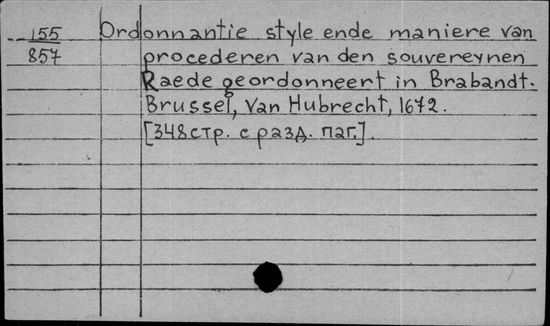 155 Ordonnantie style ende maniere van
857 procederen van den souvereynen
Raede geordonneert in Brabandt.
Brussel, Van Hubrecht, 1672.
[348 стр. с разд. паг.].